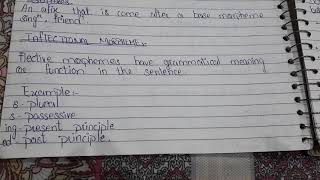 An afix that is come after a base morpheme
friend
INFLECTIONAL MORPHEME:
flective morphemes have grammatical meaning
or function in the sentence.
Example:-
s- plural
s- possessive
ing- present principle
ed- past principle.